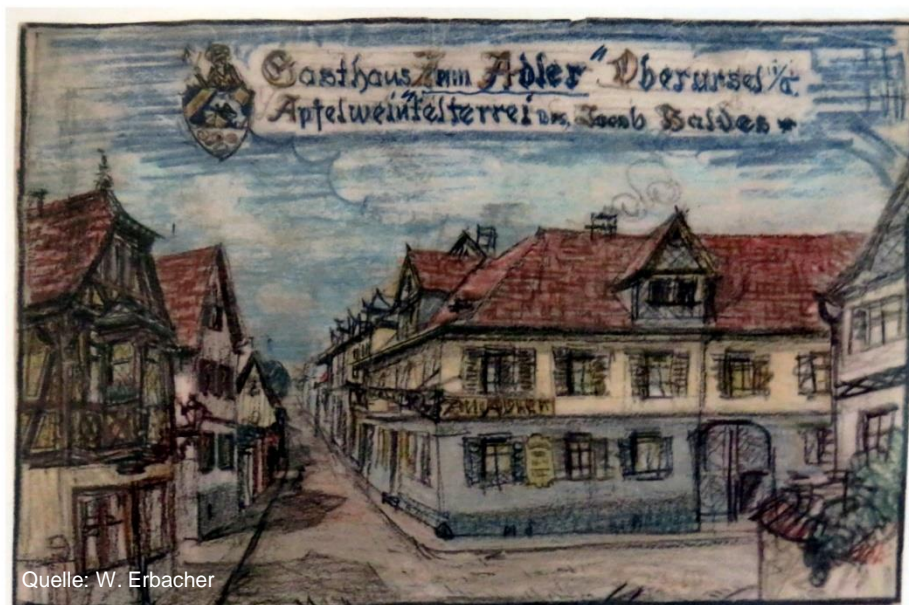 Gasthaus „Zum Adler" Oberursel i/a.
Apfelweinkelterrei von Jacob Baldes
Zum Adler
Quelle: W. Erbacher